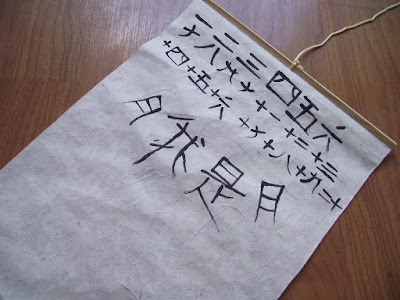 一二三四五六
七八九十十一十二十三
十四十五十六十七十八十九二十
月我是月